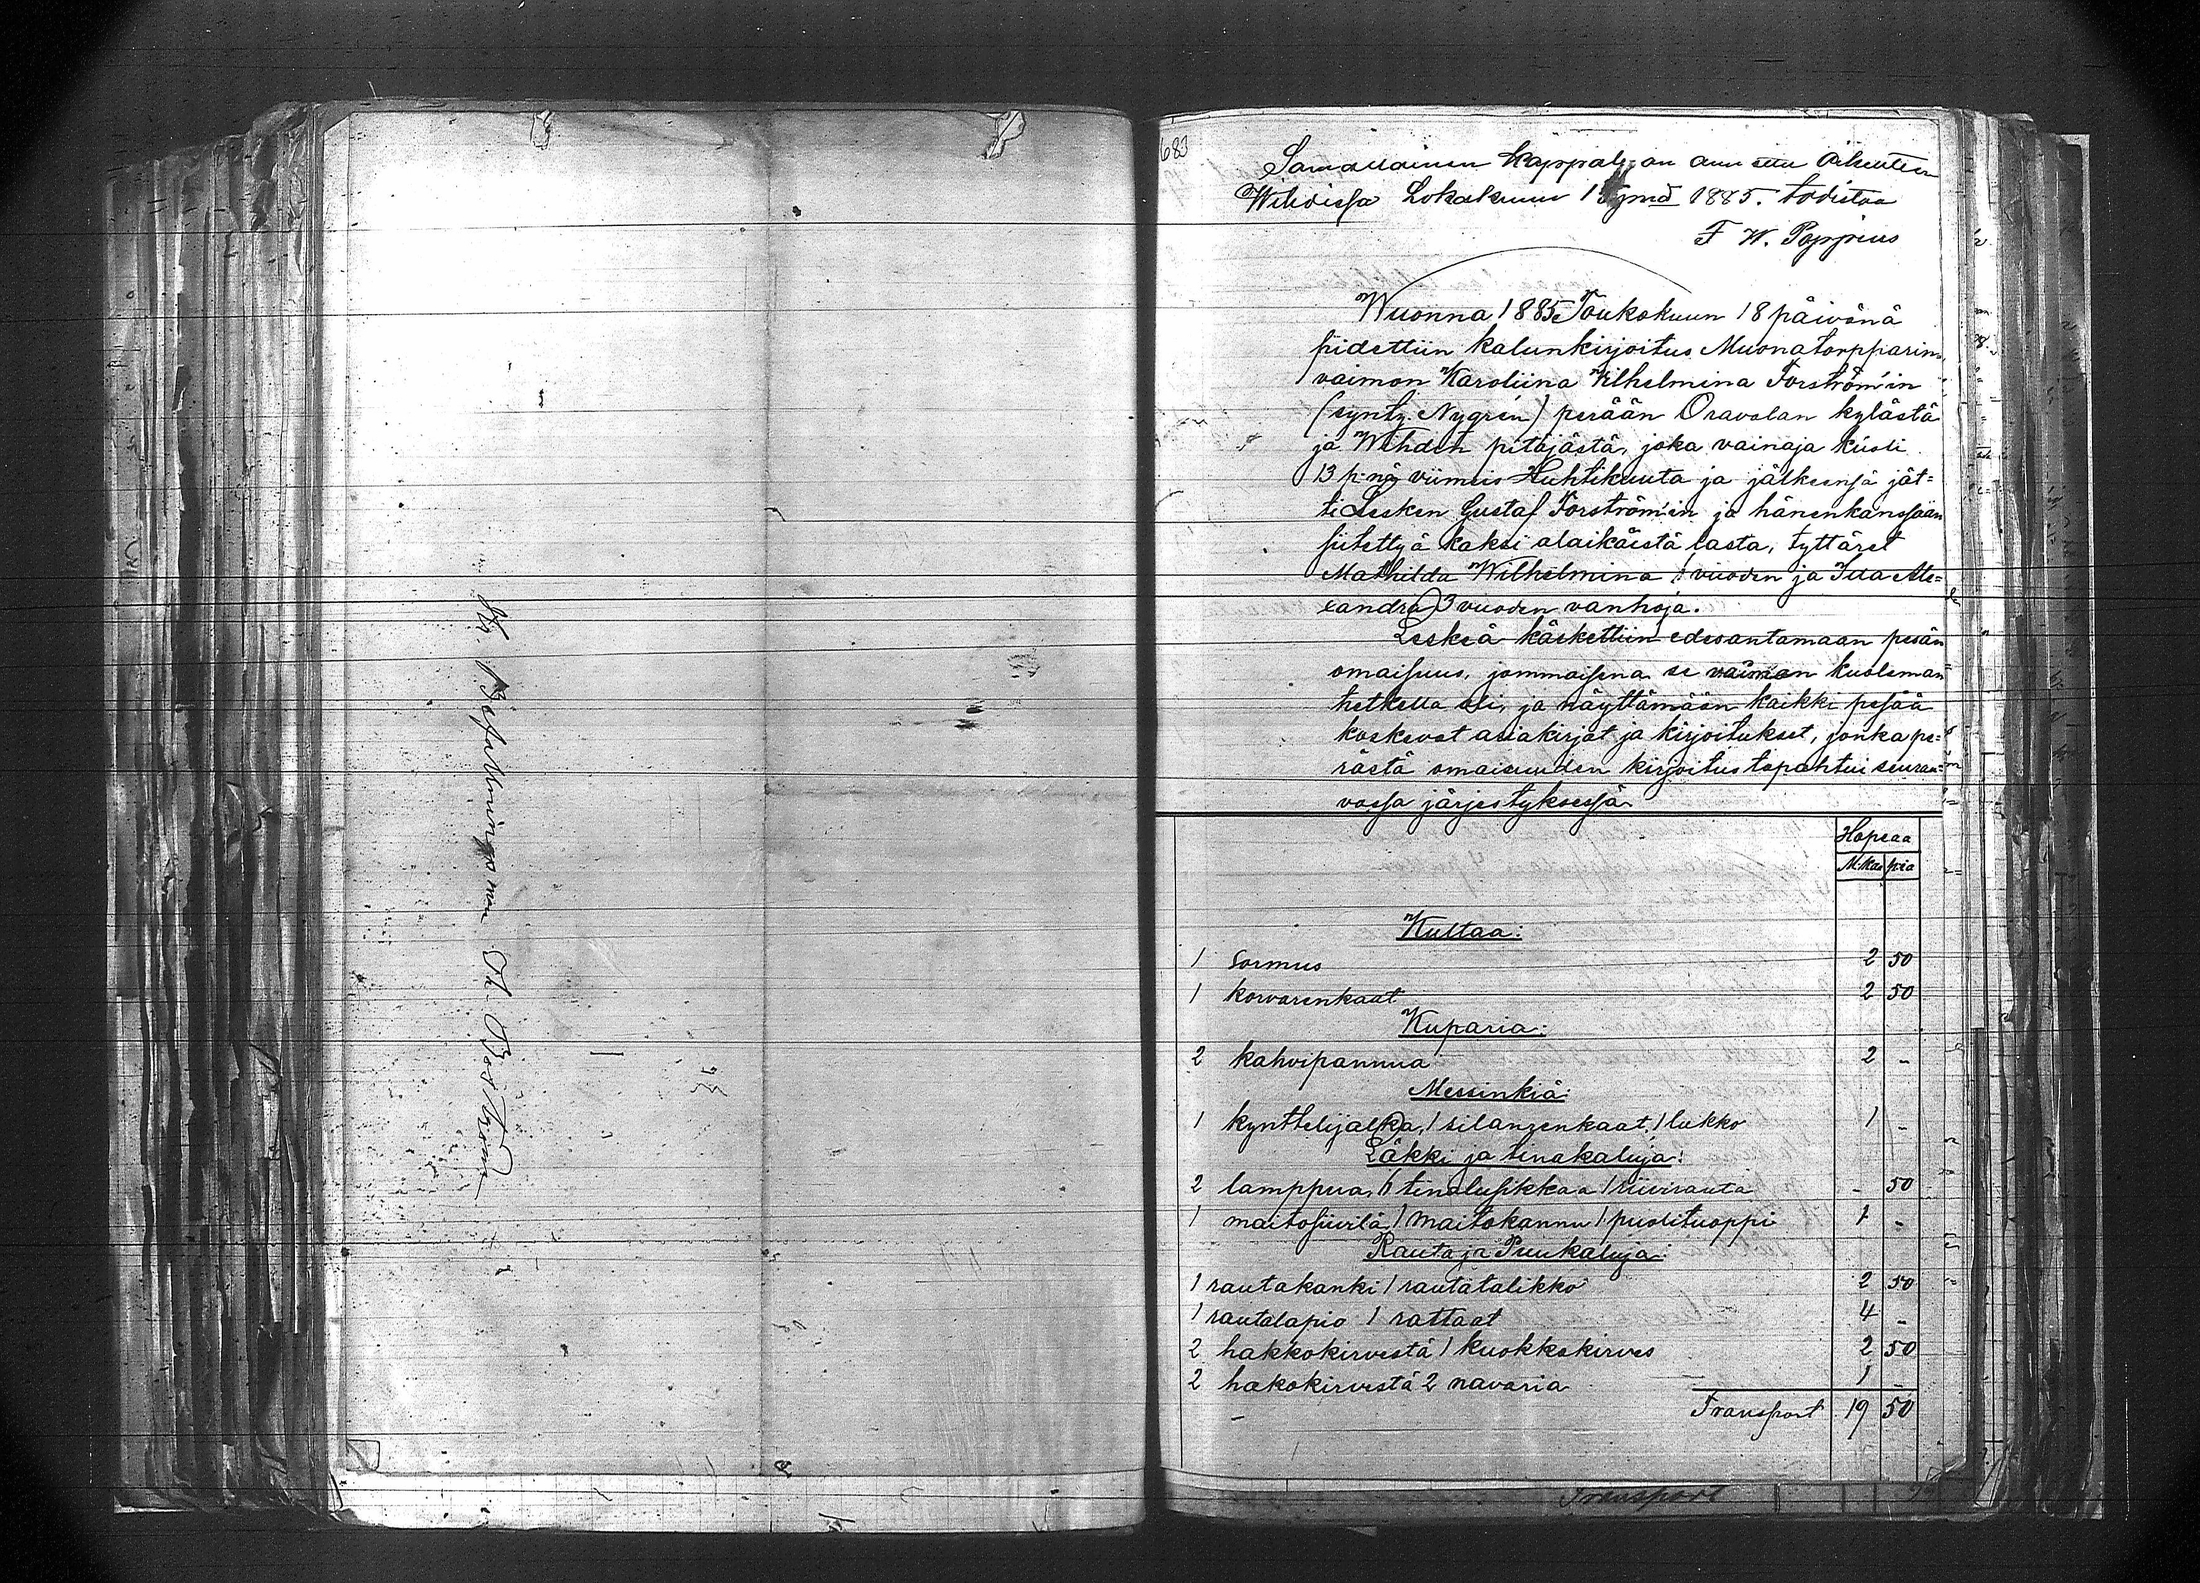 683
Samallainen kappale on annettu
Wihdissa Lokakuun 1885. todistaa
F W. Poppius
Wuonna 1885 Toukokuun 18 päivänä
pidettiin kalunkirjoitus Muonatorpparin
vaimon Karoliina Wilhelmina Forström'in
(synty. Nygrén) perään Oravalan kylästä
ja Wihdin pitäjästä, joka vainaja kuoli
13 p:nä viimeis Huhtikuuta ja jälkeensä jät-
ti Lesken Gustaf Forström'in ja hänenkanssaan
siitettyä kaksi alaikäistä lasta, tyttäret
Mathilda Wilhelmina vuoden ja Ida Ale-
xandra 3 vuoden vanhoja.
Leskeä käskettiin edesantamaan pesän
omaisuus, jommaisena se vaimon kuoleman
hetkellä oli, ja näyttämään kaikki pesää
koskevat asiakirjat ja kirjoitukset, jonka pe-
rästä omaisuuden kirjoitus tapahtui seuraa-
vassa järjestyksessä
Hopeaa
M:kaa pia
Kultaa:
1 sormus 2 50
1 korvarenkaat 2 50
Kuparia:
2 kahvipannua 2 -
Messinkiä:
1 kynttelijalka, 1 silanrenkaat, 1 lukko 1 -
Läkki ja tinakaluja:
2 lamppua, 6 tinalusikkaa 1 riivirauta - 50
1 maitosiivilä, 1 maitokannu 1 puolituoppi 1 -
Rauta ja Puukaluja:
1 rautakanki 1 rautatalikko 2 50
1 rautalapio 1 rattaat 4 -
2 hakkokirvestä 1 kuokkakirves 2 50
2 hakokirvestä 2 navaria 1 -
Transport 19 50
Transport